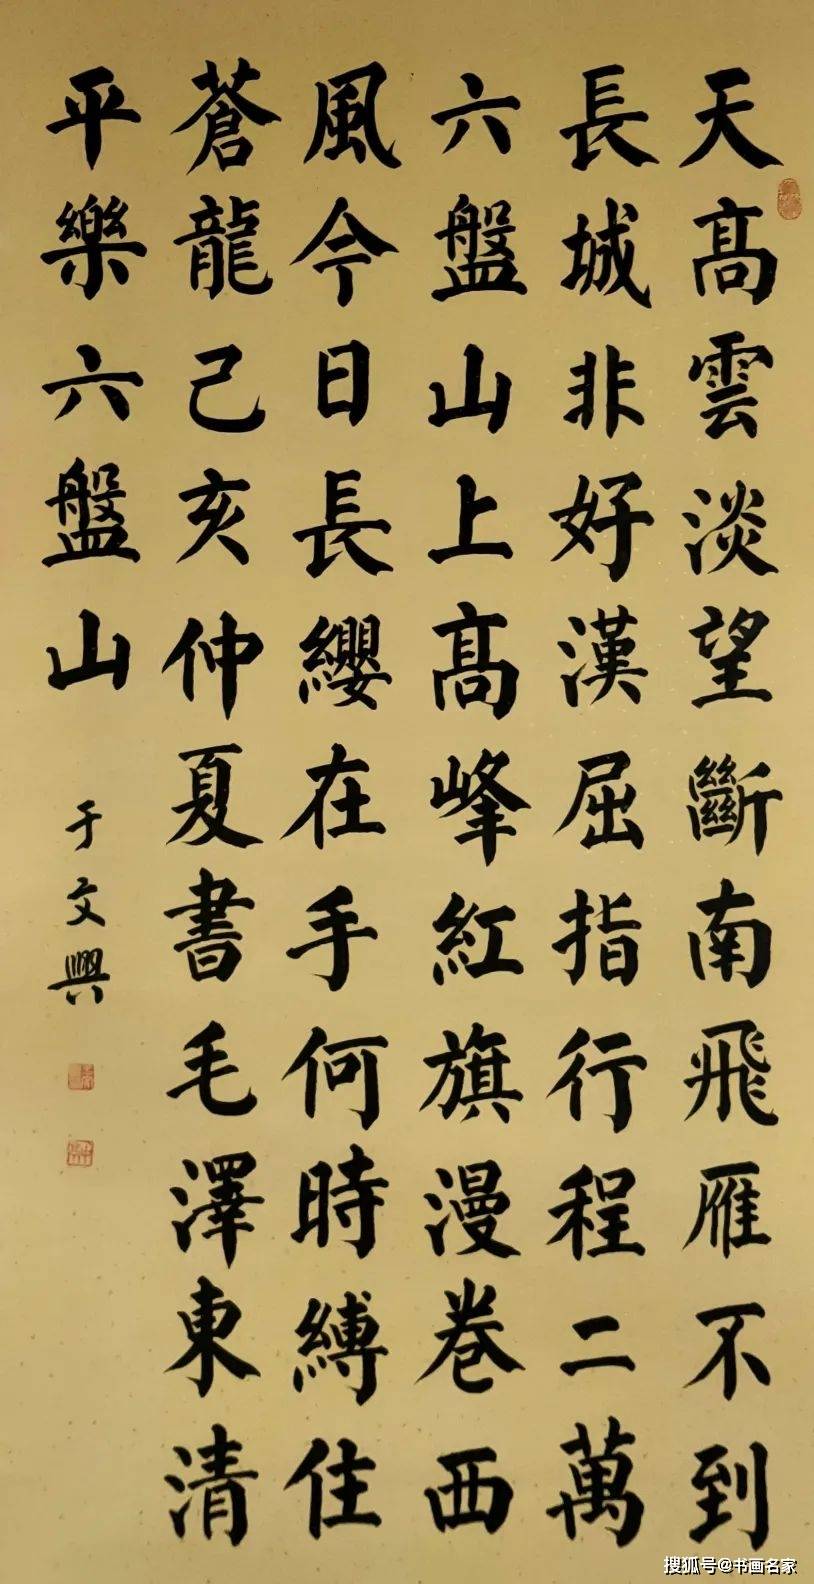 天高雲淡望斷南飛雁不到
長城非好漢屈指行程二萬
六盤山上高峰紅旗漫卷西
風今日長纓在手何時縛住
蒼龍己亥仲夏書毛澤東清
平樂六盤山
于文興
搜狐号@书画名家